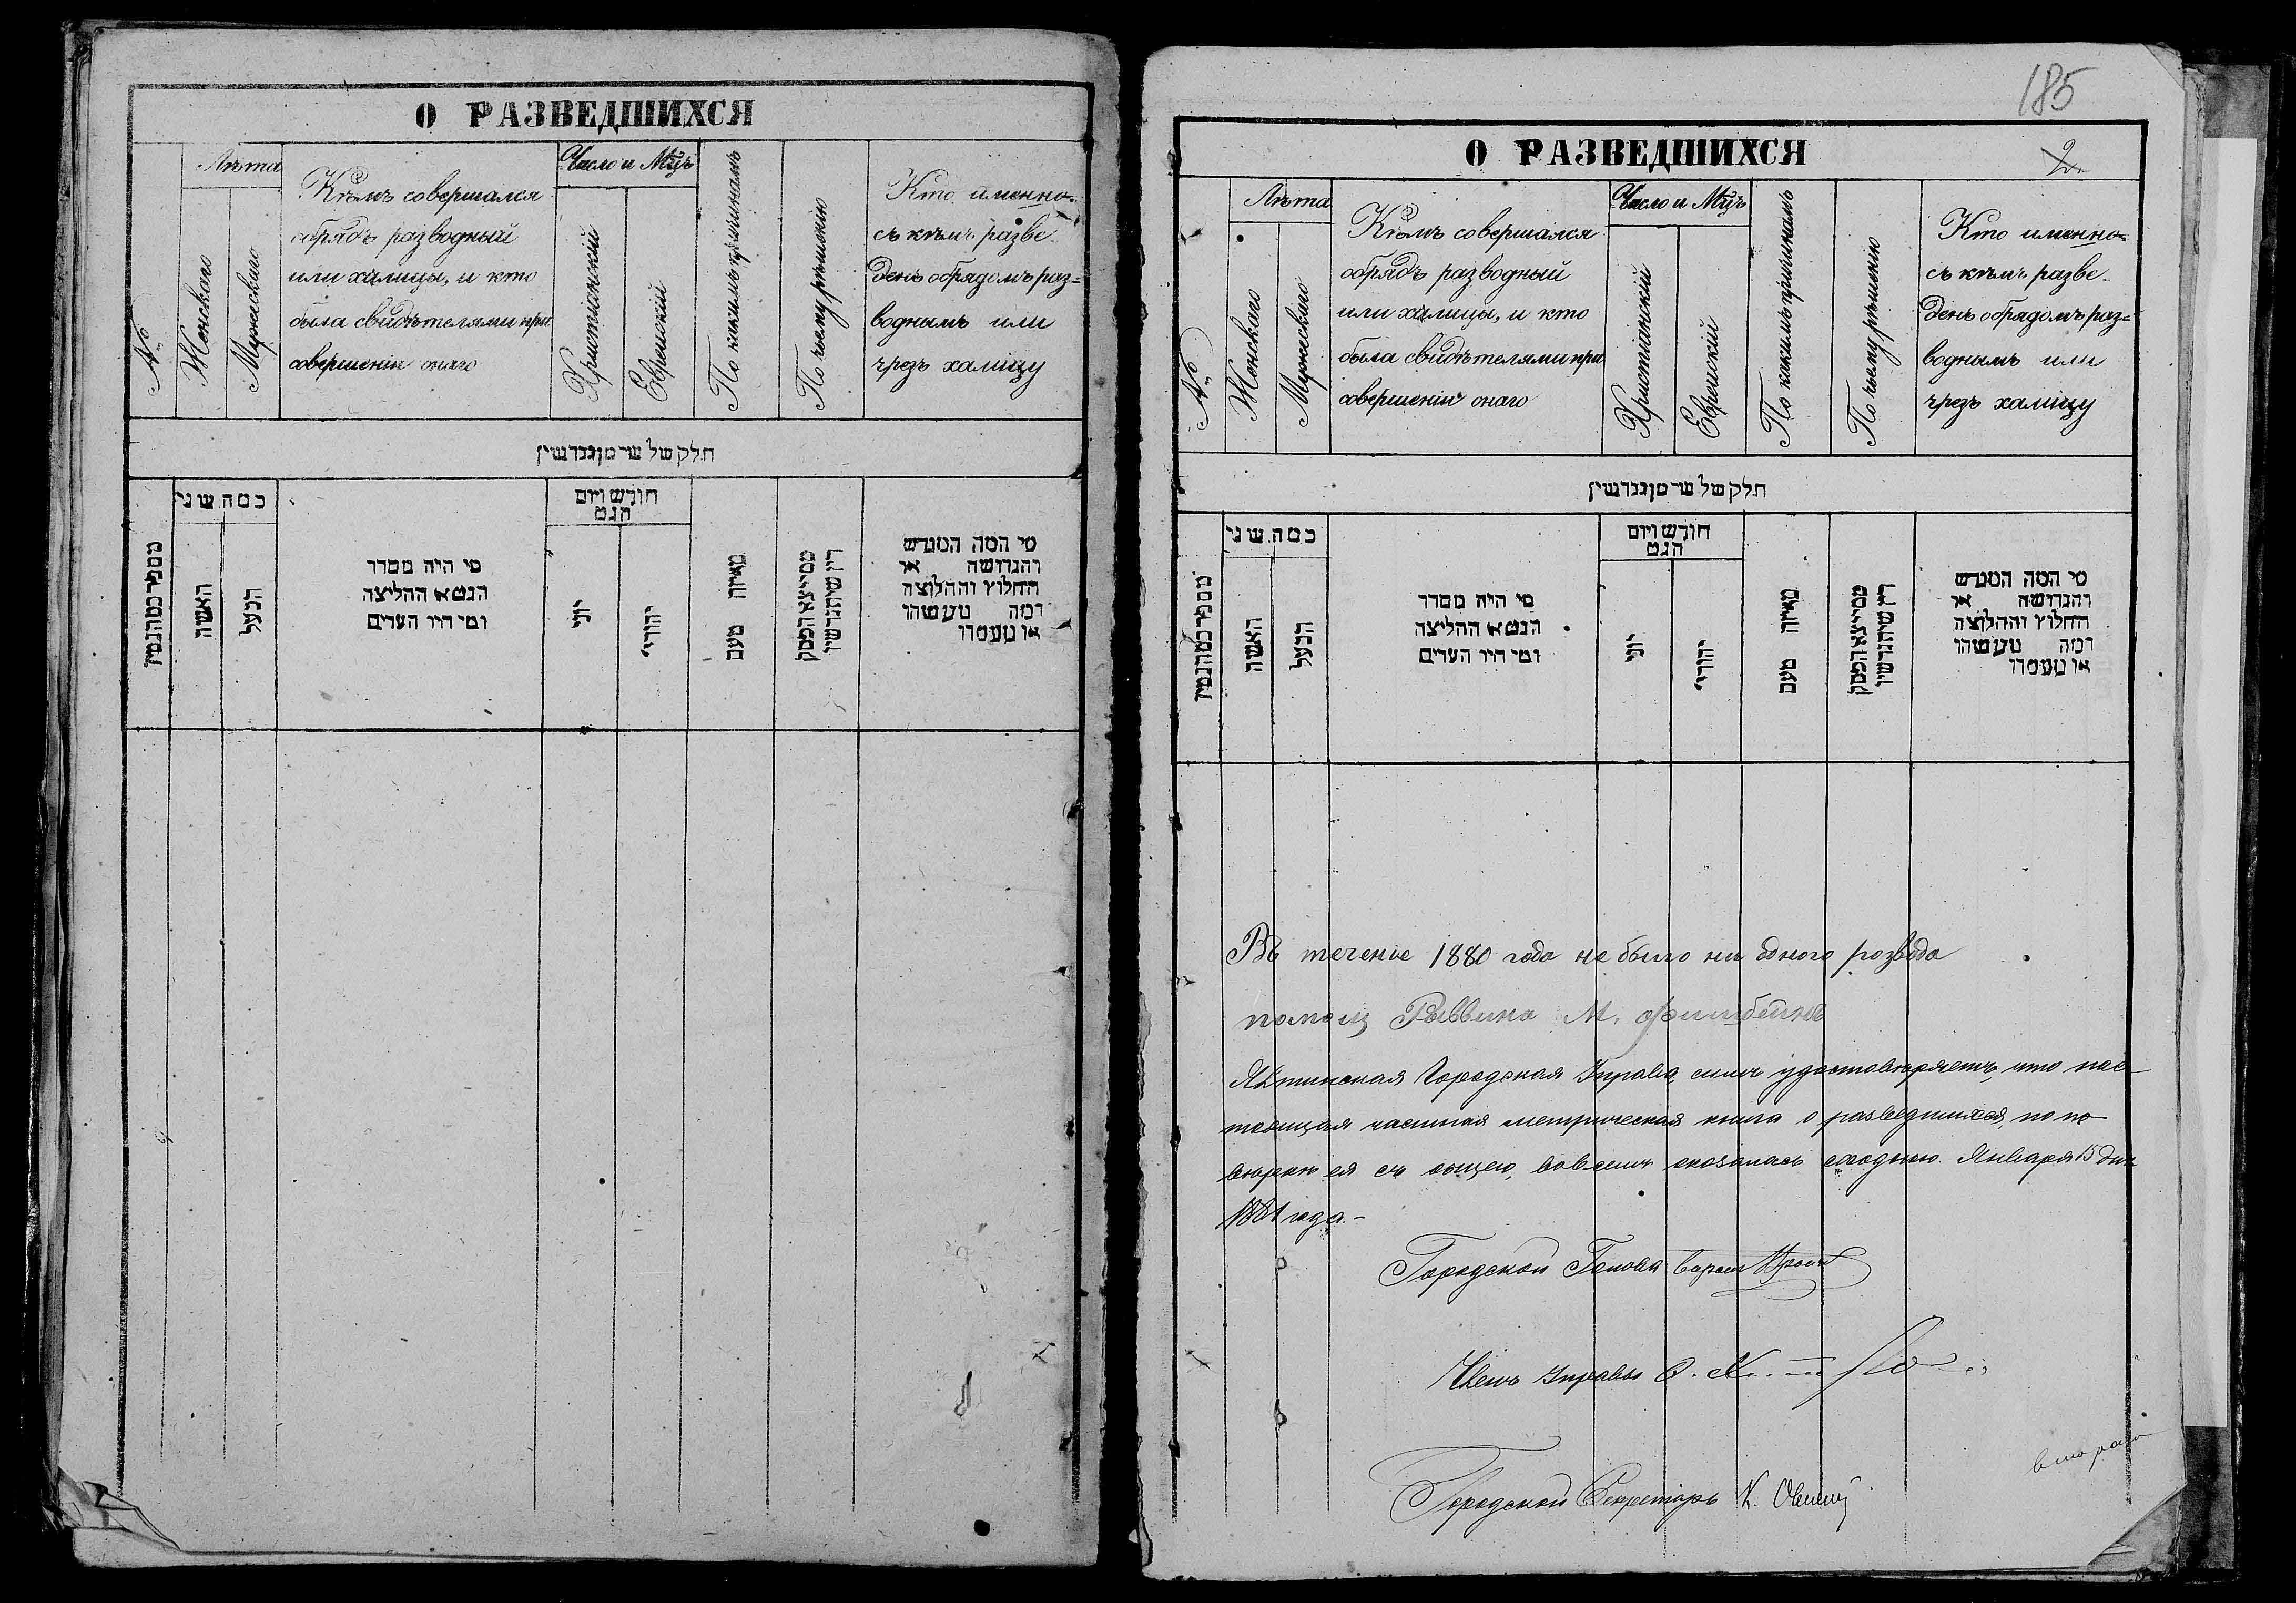 О РАЗВЕДШИХСЯ
№
Лѣта
Женскаго
Мужескаго
Кѣмъ совершался
обрядъ разводный
или халицы, и кто
была свидѣтелями при
совершеніи онаго
Число и Мцъ
Христіанскій
Еврейскій
По какимъ причинамъ
По чьему рѣшенію
Кто именно
съ кѣмъ разве-
денъ обрядомъ раз=
воднымъ или
чрезъ халицу
חלק של שר מן גנדשין
כמה שני
האשה
הבעל
מי היה מסדר
הגט א ההליצה
ומי היו העדים
חודש ויום
הגט
יוני
יהודיי
מאיזה טעם
מי המה המגרש
והגרושה או
החלוץ וההלוצה
ומה מעשהו
או מעמדו
185
О РАЗВЕДШИХСЯ
2
№
Лѣта
Женскаго
Мужескаго
Кѣмъ совершался
обрядъ разводный
или халицы, и кто
была свидѣтелями при
совершеніи онаго
Число и Мцъ
Христіанскій
Еврейскій
По какимъ причинамъ
По чьему рѣшенію
Кто именно
съ кѣмъ разве-
денъ обрядомъ раз=
воднымъ или
чрезъ халицу
חלק של שר מן גנדשין
כמה שני
האשה
הבעל
מי היה מסדר
הגט א ההליצה
ומי היו העדים
חודש ויום
הגט
יוני
יהודיי
מאיזה טעם
מי המה המגרש
והגרושה או
החלוץ וההלוצה
ומה מעשהו
או מעמדו
Въ теченіе 1880 года не было ни одного розвода
помощ Раввина М. Фишбейнъ
Ялтинская Городская Управа симъ удостовѣряетъ, что нас-
тоящая частная метрическая книга о разведшихся, по по-
вѣркѣ ея съ общею, во всемъ оказалась сходною. Января 15 дня
1881 года.-
Городской Голова
Членъ Управы
Городской Секретарь К.
вторая